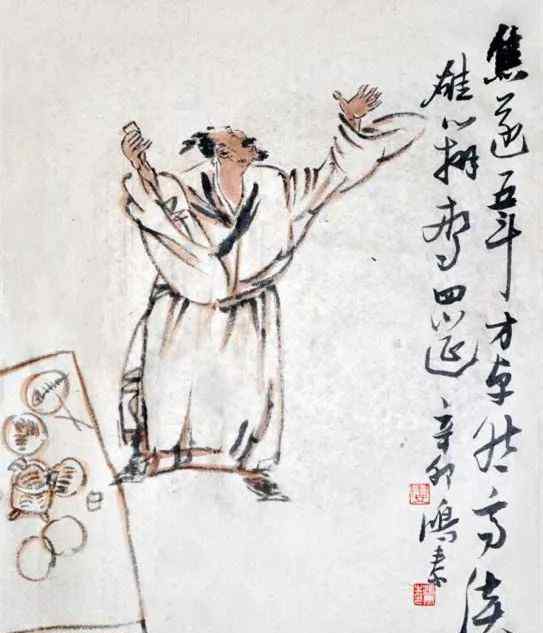 焦遂五斗方卓然高谈
雄辩惊四筵 辛卯 鸿泰